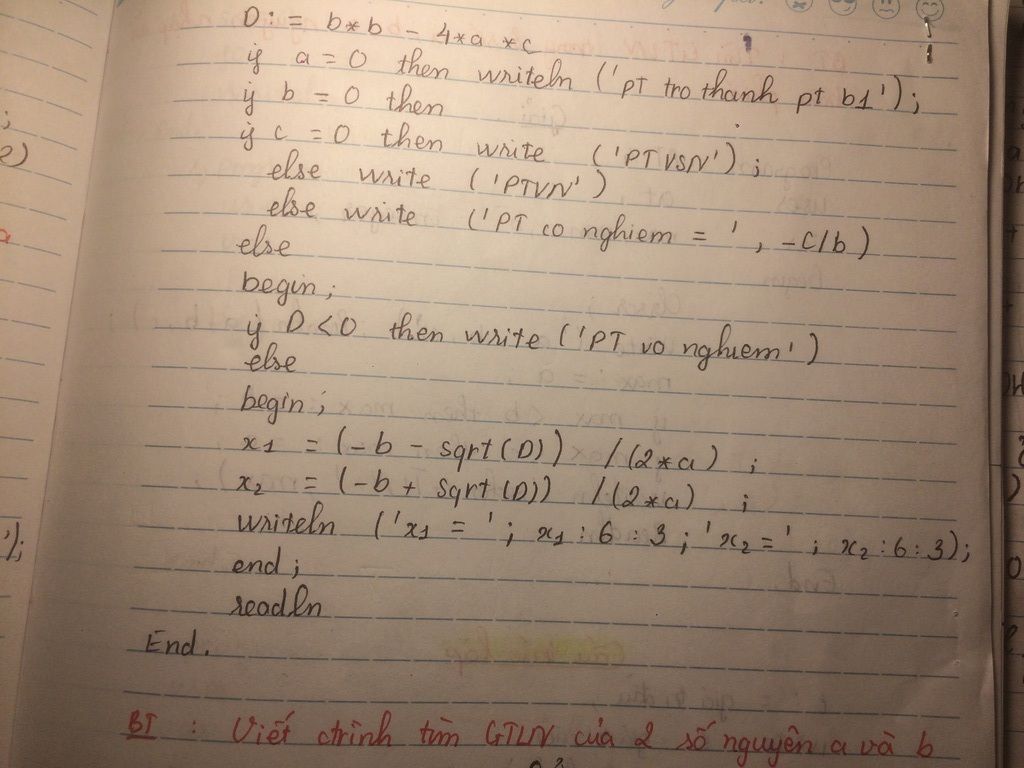 D := b*b - 4*a*c
if a = 0 then writeln ('pt tro thanh pt b1');
if b = 0 then
if c = 0 then write ('PTVSN');
else write ('PTVN')
else write ('PT co nghiem = ', -c/b)
else
begin;
if D<0 then write ('PT vo nghiem')
else
begin;
x1 = (-b - sqrt(D)) /(2*a) ;
x2 = (-b + sqrt(D)) /(2*a) ;
writeln ('x1 = '; x1:6:3; 'x2=' ; x2:6:3);
end;
readln
End.
BT : Viết ctrình tìm GTLN của 2 số nguyên a và b